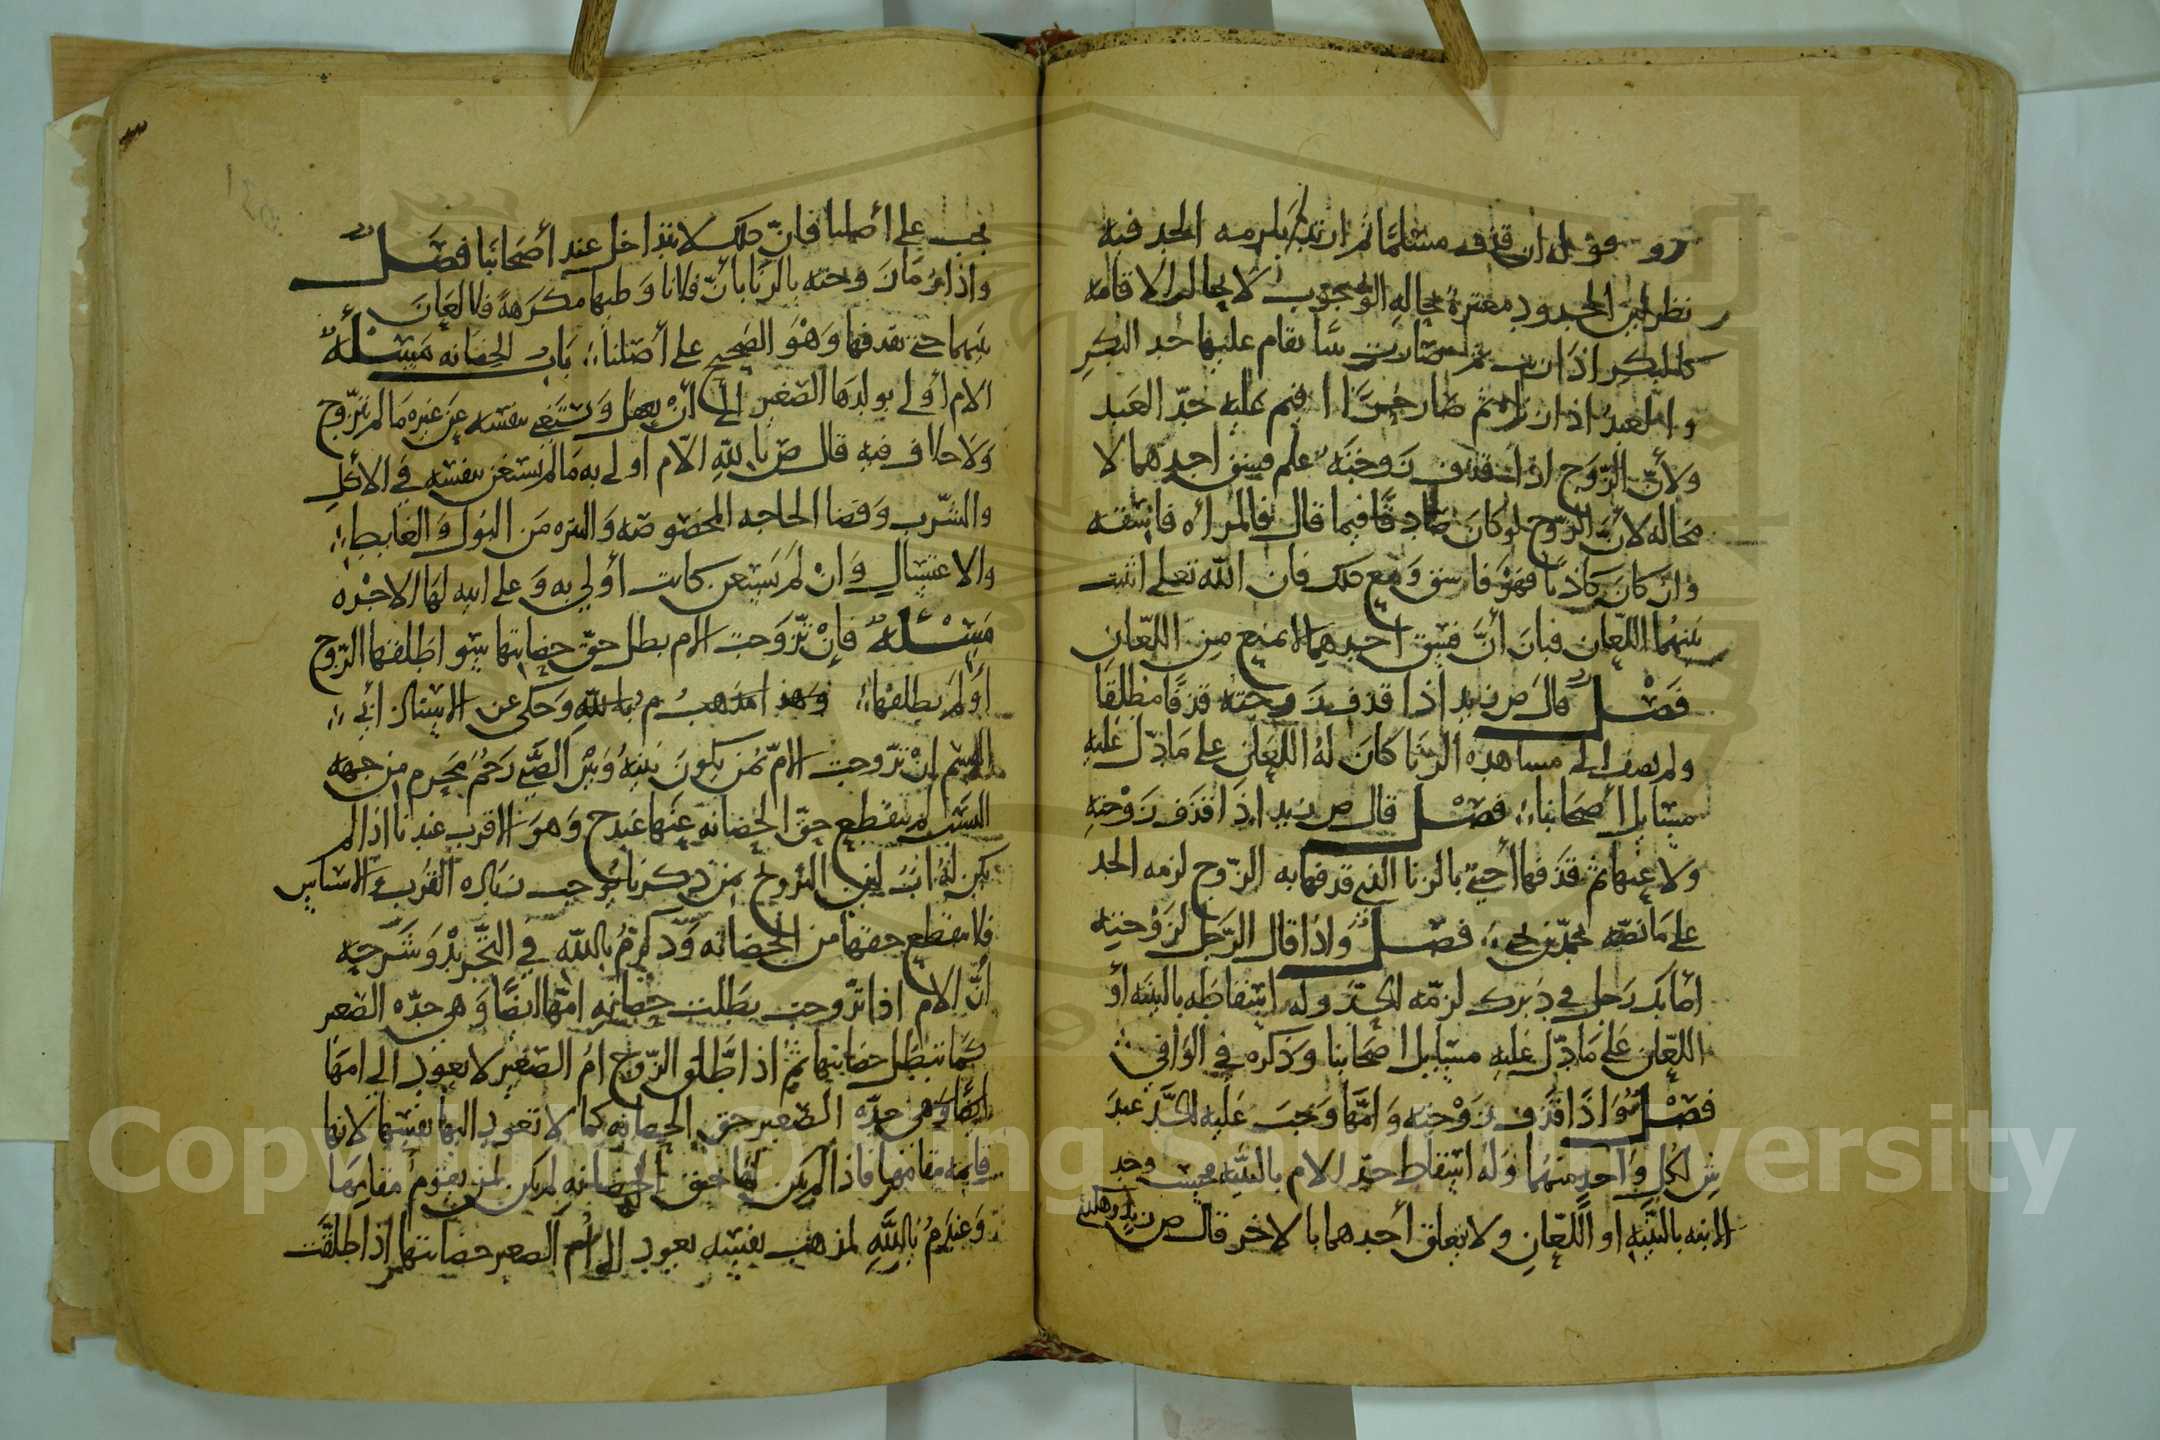 ان قذف مسلما ثم ارتد يلزمه الحد فيه
نظر لان الحدود معتبرة بحالة الوجوب لا بحالة الاقامة
كالبكر اذا زنت ثم صارت ثيبا يقام عليها حد البكر
والعبد اذا زنا ثم صار حرا اقيم عليه حد العبد
ولأن الزوج اذا قذف زوجته علم فسق احدهما لا
محالة لأن الزوج لو كان صادقا فيما قال فالمرأة فاسقة
وان كان كاذبا فهو فاسق ومع ذلك فان الله تعلى اثبت
بينهما اللعان فبان أن فسق احدهما لا يمنع من اللعان
فصل قال ص زيد اذا قذف زوجته قذفا مطلقا
ولم يضف الى مشاهدة الزنا كان له اللعان على ما دل عليه
مسايل أصحابنا فصل قال ص زيد اذا قذف زوجته
ولاعنها ثم قذفها أجنبي بالزنا الذي قذفها به الزوج لزمه الحد
على ما نصه محمد بن يحيى فصل واذا قال الرجل لزوجته
أتاك رجل في دبرك لزمه الحد وله اسقاطه بالبينة أو
اللعان على ما دل عليه مسايل اصحابنا وذكره في الوافي
فصل واذا قذف زوجته وامها وجب عليه الحد عند
ش لكل واحد منهما وله اسقاط حد الام بالبينة وحد
الابنة بالبينة او اللعان ولا يتعلق أحدهما بالاخر قال ص زيد وهكذا
يجب على أصلنا فان ذلك لا يتداخل عند أصحابنا فصل
واذا رمى زوجته بالزنا بأن فلانا وطيها مكرهة فلا لعان
بينهما حتى يقذفها وهو الصحيح على أصلنا باب الحضانة مسئلة
الام أولى بولدها الصغير إلى أن يعقل ويستغني بنفسه عن غيره ما لم تتزوج
ولا خلاف فيه قال ص بالله الام اولى به ما لم يستغن بنفسه في الأكل
والشرب وقضا الحاجة المخصوصة والتنزه من البول والغايط
والاغتسال وان لم يستغن كانت أولى به وعلى ابيه لها الاجرة
مسئلة فإن تزوجت الام بطل حق حضانتها سوا طلقها الزوج
أو لم يطلقها وهذا مذهب م بالله وحكى عن الاستاذ أبي
القسم ان تزوجت الام بمن يكون بينه وبين الصبي رحم محرم من جهة
النسب لم ينقطع حق الحضانة عنها عند ح وهو الاقرب عندنا اذا لم
يكن له اب لان التزوج بمن ذكرنا يوجب زيادة القرب والاستاس
فلا ينقطع حقها من الحضانة وذكر م بالله في التجريد وشرحه
أن الام اذا تزوجت بطلت حضانة امها ايضا وهي جدة الصغير
كما تبطل حضانتها ثم اذا طلق الزوج ام الصغير لا يعود الى امها
ايضا وهي جدة الصغير حق الحضانة كما لا تعود اليها بنفسها لانها
قايمة مقامها فاذا لم يكن لها حق الحضانة لم يكن لمن يقوم مقامها
وعند م بالله لمذهب نفسه يعود الى ام الصغير حضانتها اذا طلقت
Copyright © King Saud University